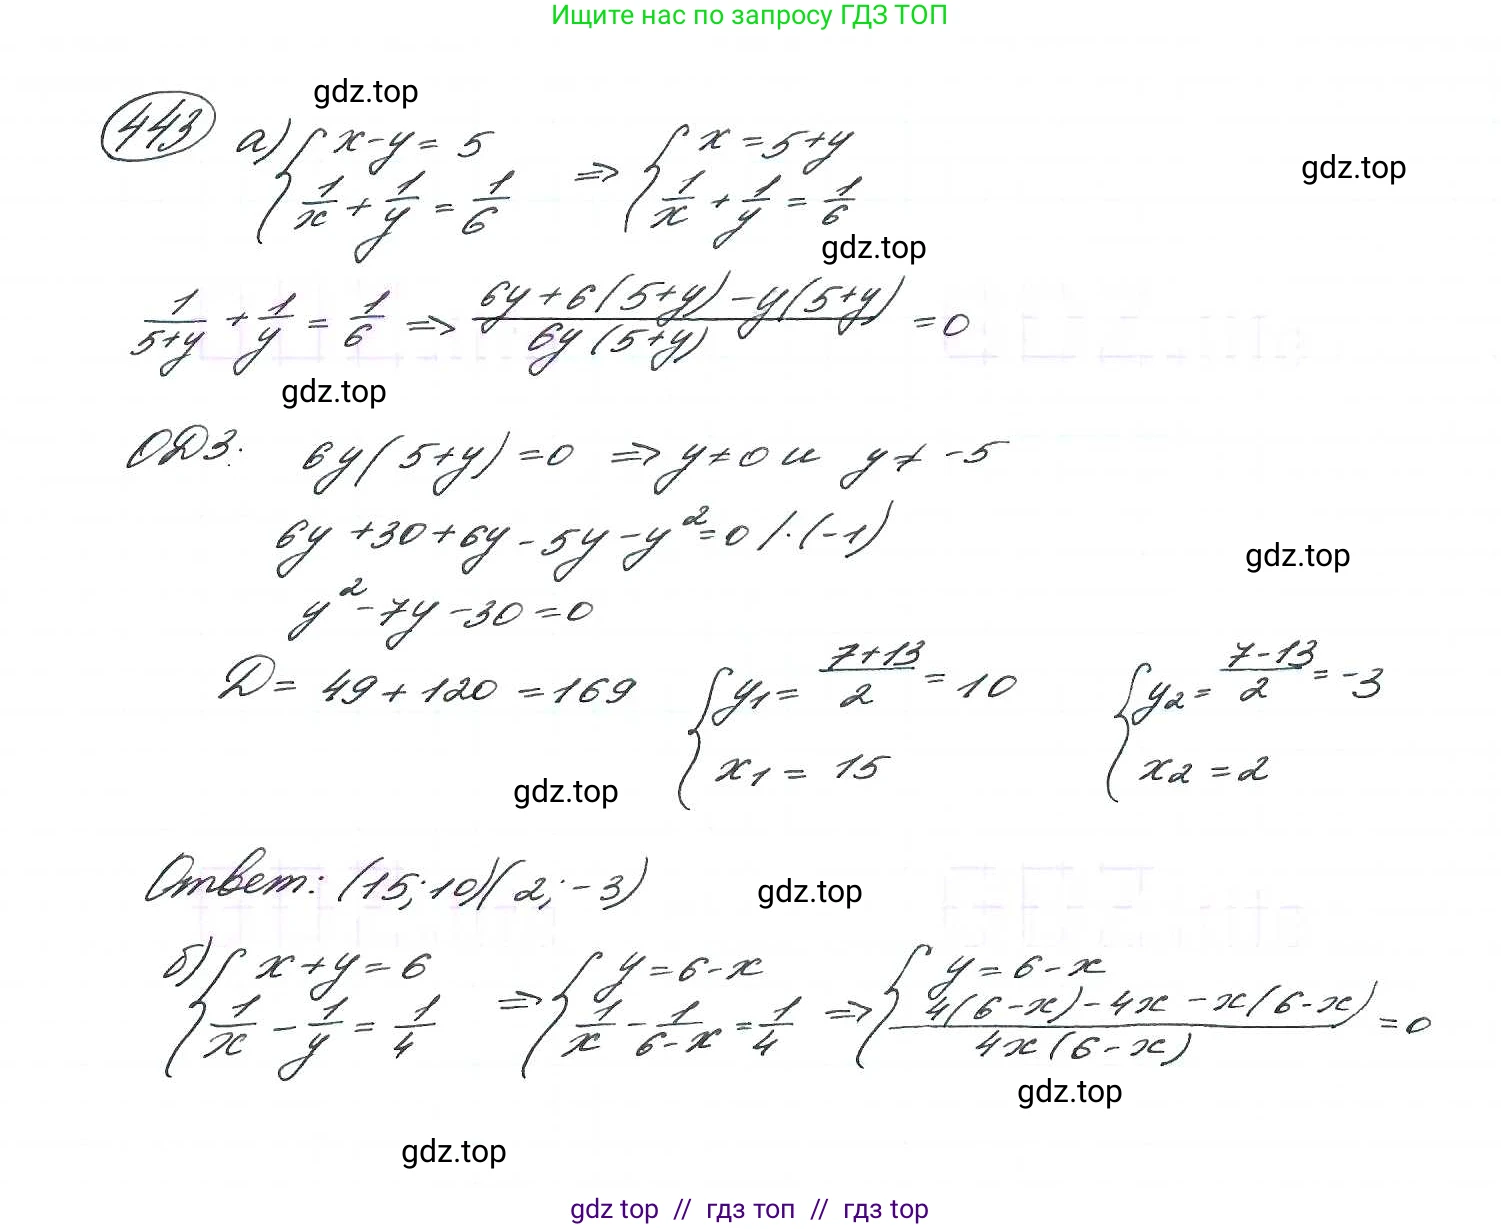 Ищите нас по запросу ГДЗ ТОП
gdz.top
443 а) { x - y = 5 ; 1/x + 1/y = 1/6 ⇒ { x = 5 + y ; 1/x + 1/y = 1/6
gdz.top
gdz.top
1/(5+y) + 1/y = 1/6 ⇒ (6y + 6(5+y) - y(5+y))/(6y(5+y)) = 0
gdz.top
ОДЗ: 6y(5+y) = 0 ⇒ y ≠ 0 и y ≠ -5
6y + 30 + 6y - 5y - y² = 0 /·(-1)
gdz.top
y² - 7y - 30 = 0
D = 49 + 120 = 169 { y₁ = (7+13)/2 = 10 ; x₁ = 15 { y₂ = (7-13)/2 = -3 ; x₂ = 2
gdz.top
Ответ: (15; 10)(2; -3)
gdz.top
б) { x + y = 6 ; 1/x - 1/y = 1/4 ⇒ { y = 6 - x ; 1/x - 1/(6-x) = 1/4 ⇒ { y = 6 - x ; (4(6-x) - 4x - x(6-x))/(4x(6-x)) = 0
gdz.top
gdz.top
gdz top // гдз топ // гдз top